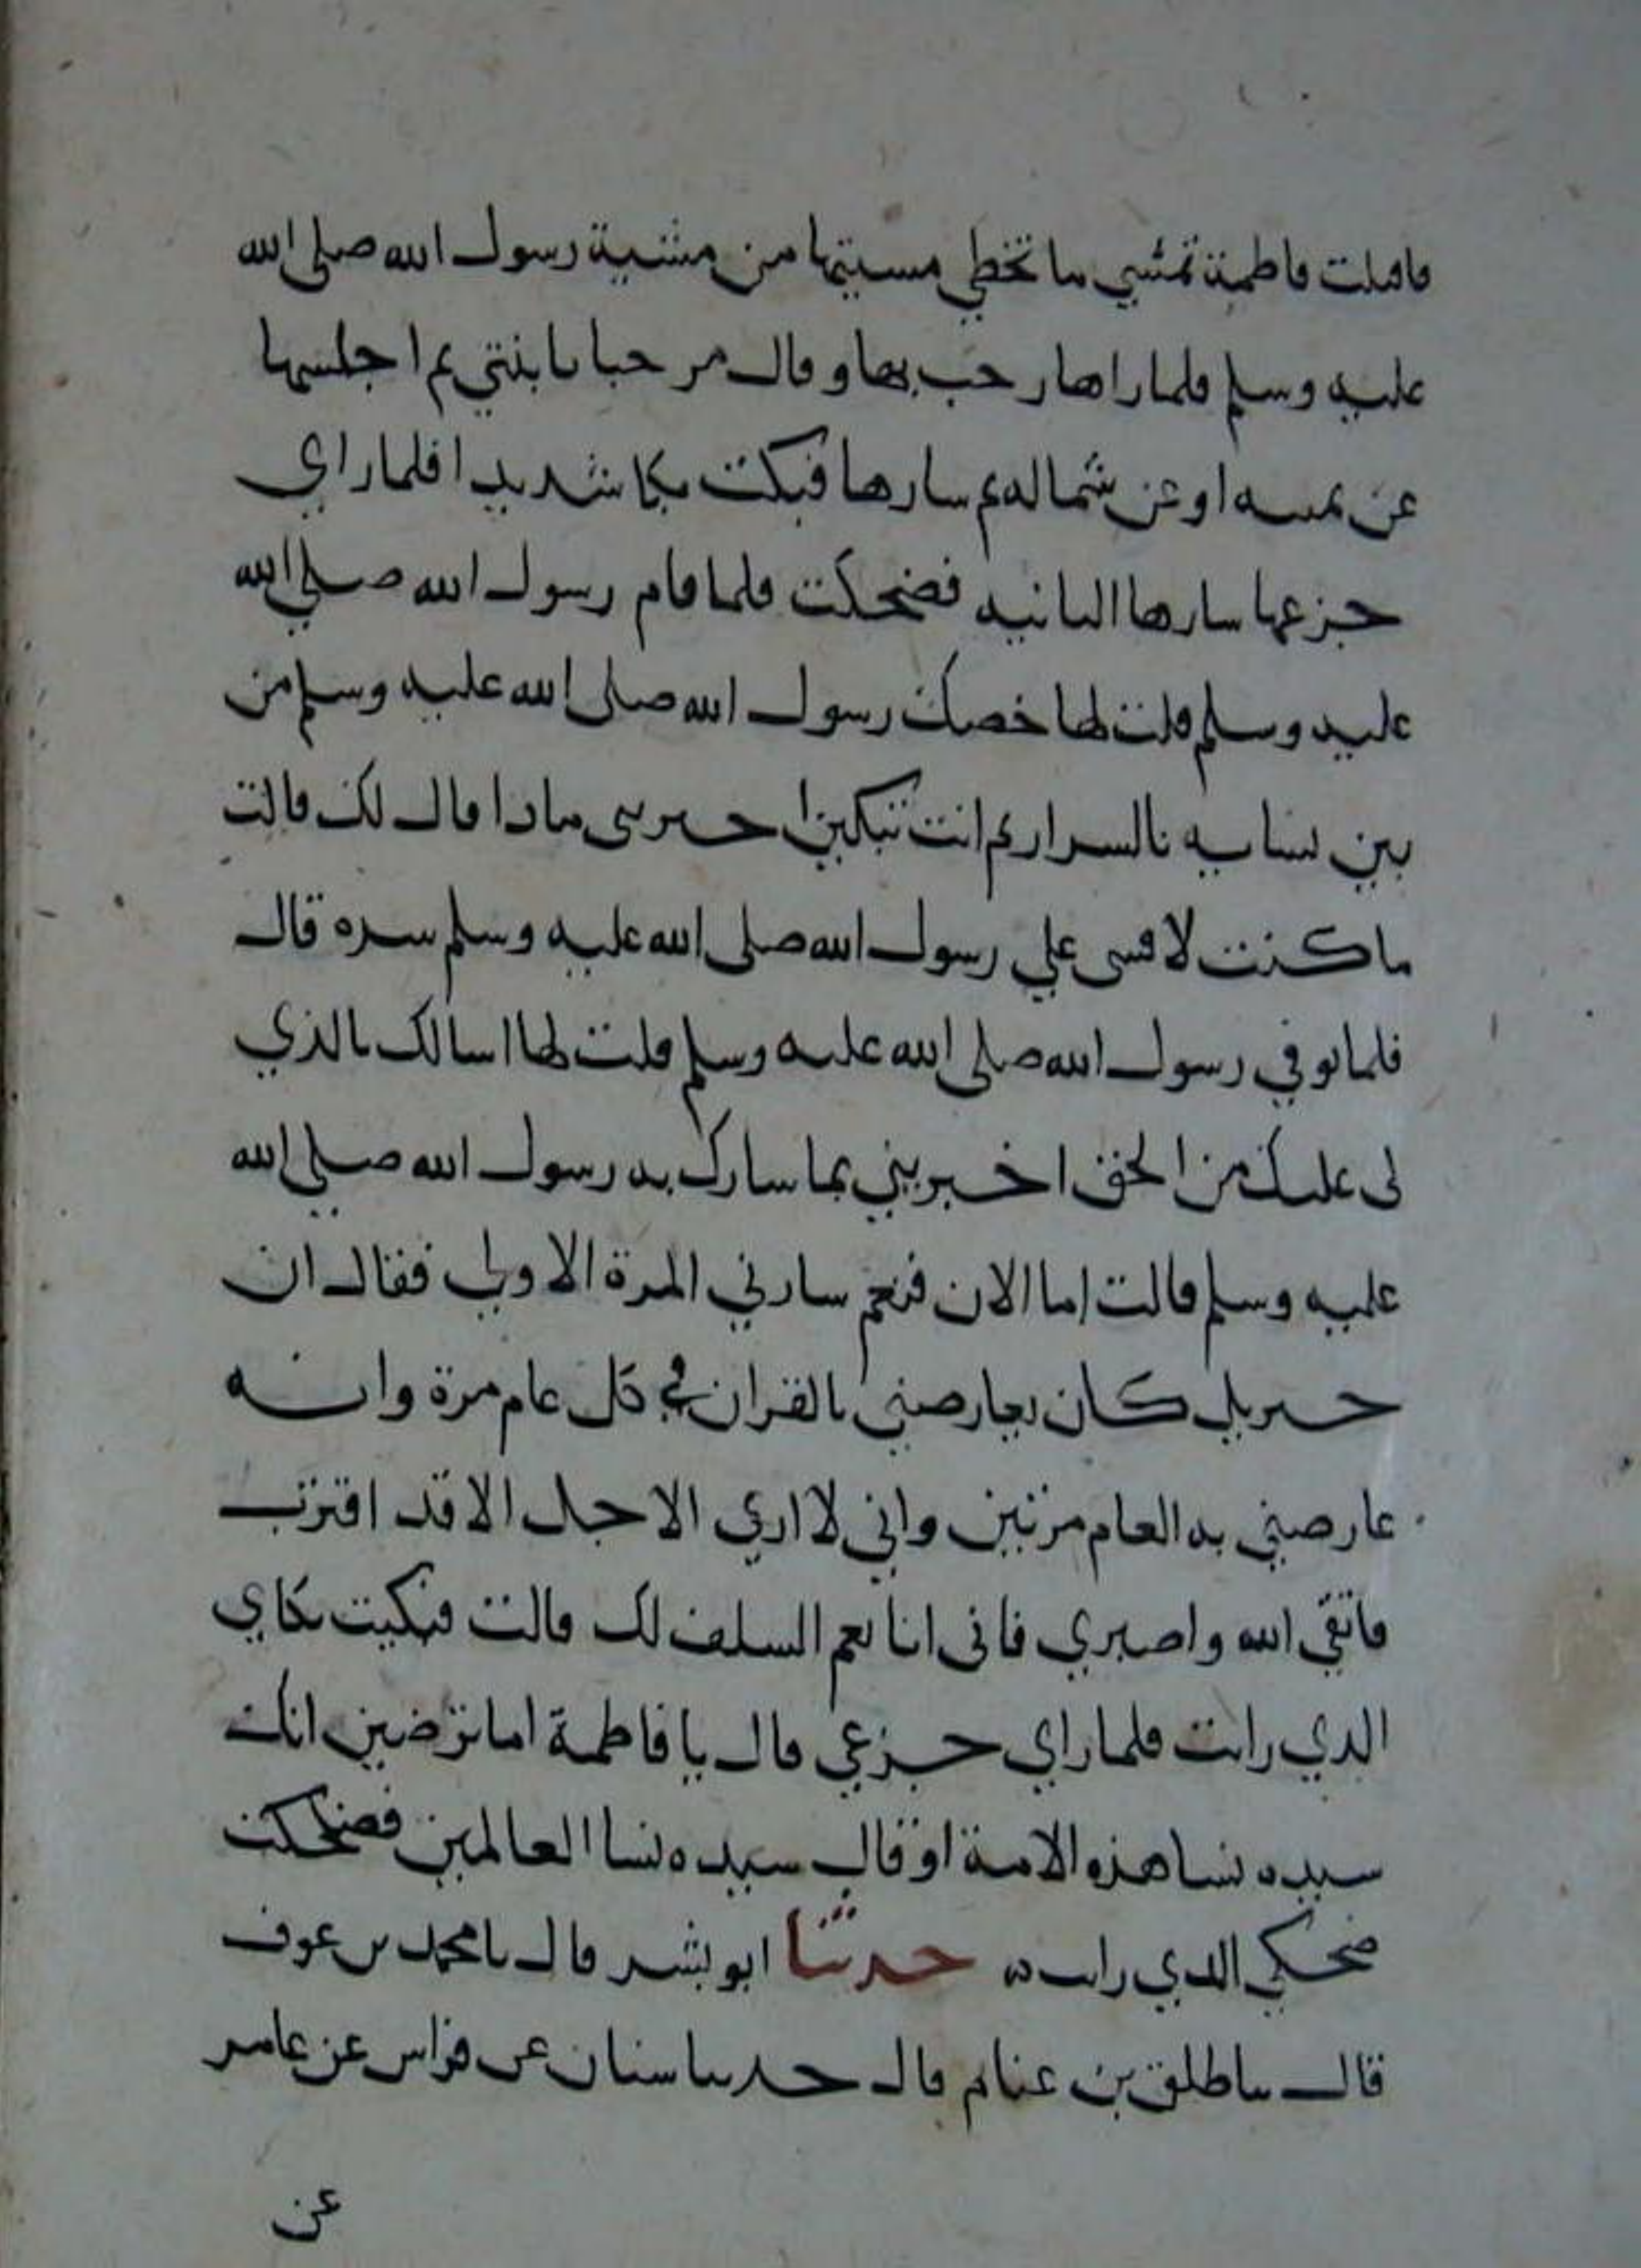 فاقبلت فاطمة تمشي ما تخطي مشيتها من مشية رسول الله صلى الله
عليه وسلم فلما راها رحب بها وقال مرحبا بابنتي ثم اجلسها
عن يمينه او عن شماله ثم سارها فبكت بكا شديدا فلما راي
جزعها سارها الثانيه فضحكت فلما قام رسول الله صلي الله
عليه وسلم قلت لها خصك رسول الله صلى الله عليه وسلم من
بين نسايه بالسرار ثم انت تبكين اخبريني ماذا قال لك قالت
ما كنت لافشى علي رسول الله صلى الله عليه وسلم سره قال
فلما توفي رسول الله صلى الله عليه وسلم قلت لها اسالك بالذي
لى عليك من الحق اخبريني بما سارك به رسول الله صلي الله
عليه وسلم قالت اما الان فنعم سارني المرة الاولي فقال ان
جبريل كان يعارضني بالقران في كل عام مرة وانه
عارضني به العام مرتين واني لا اري الاجل الا قد اقترب
فاتقي الله واصبري فانى انا نعم السلف لك قالت فبكيت بكاي
الذي رايت فلما راي جزعي قال يا فاطمة اما ترضين انك
سيده نسا هذه الامة او قال سيده نسا العالمين فضحكت
ضحكي الذي رايت ه حدثنا ابو بشر قال نا محمد بن عوف
قال نا طلق بن غنام قال حدثنا سنان عن فراس عن عامر
عن